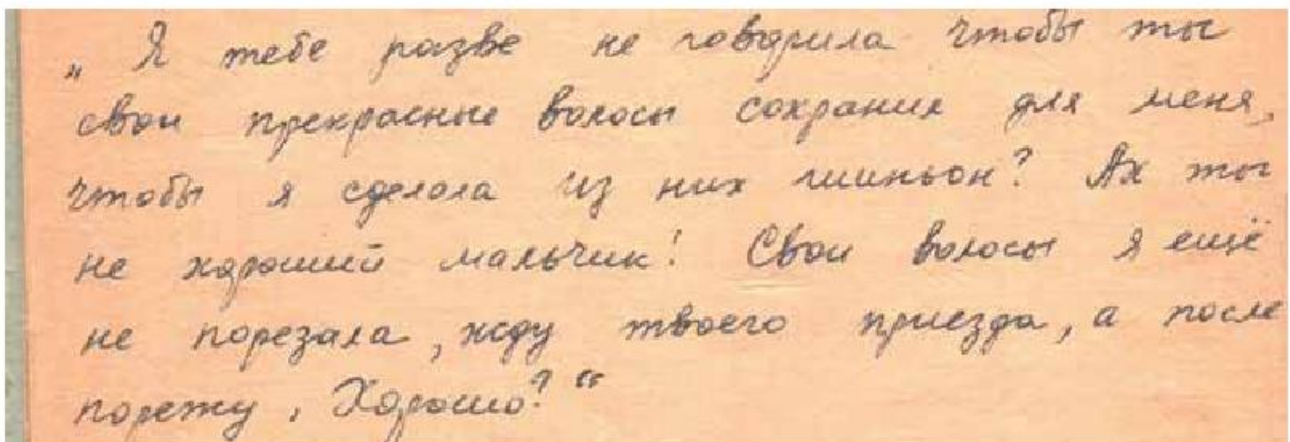 „ Я тебе разве не говорила чтобы ты
свои прекрасные волосы сохранил для меня,
чтобы я сделала из них шиньон? Ах ты
не хороший мальчик! Свои волосы я ещё
не порезала, жду твоего приезда, а после
порежу, Хорошо?“